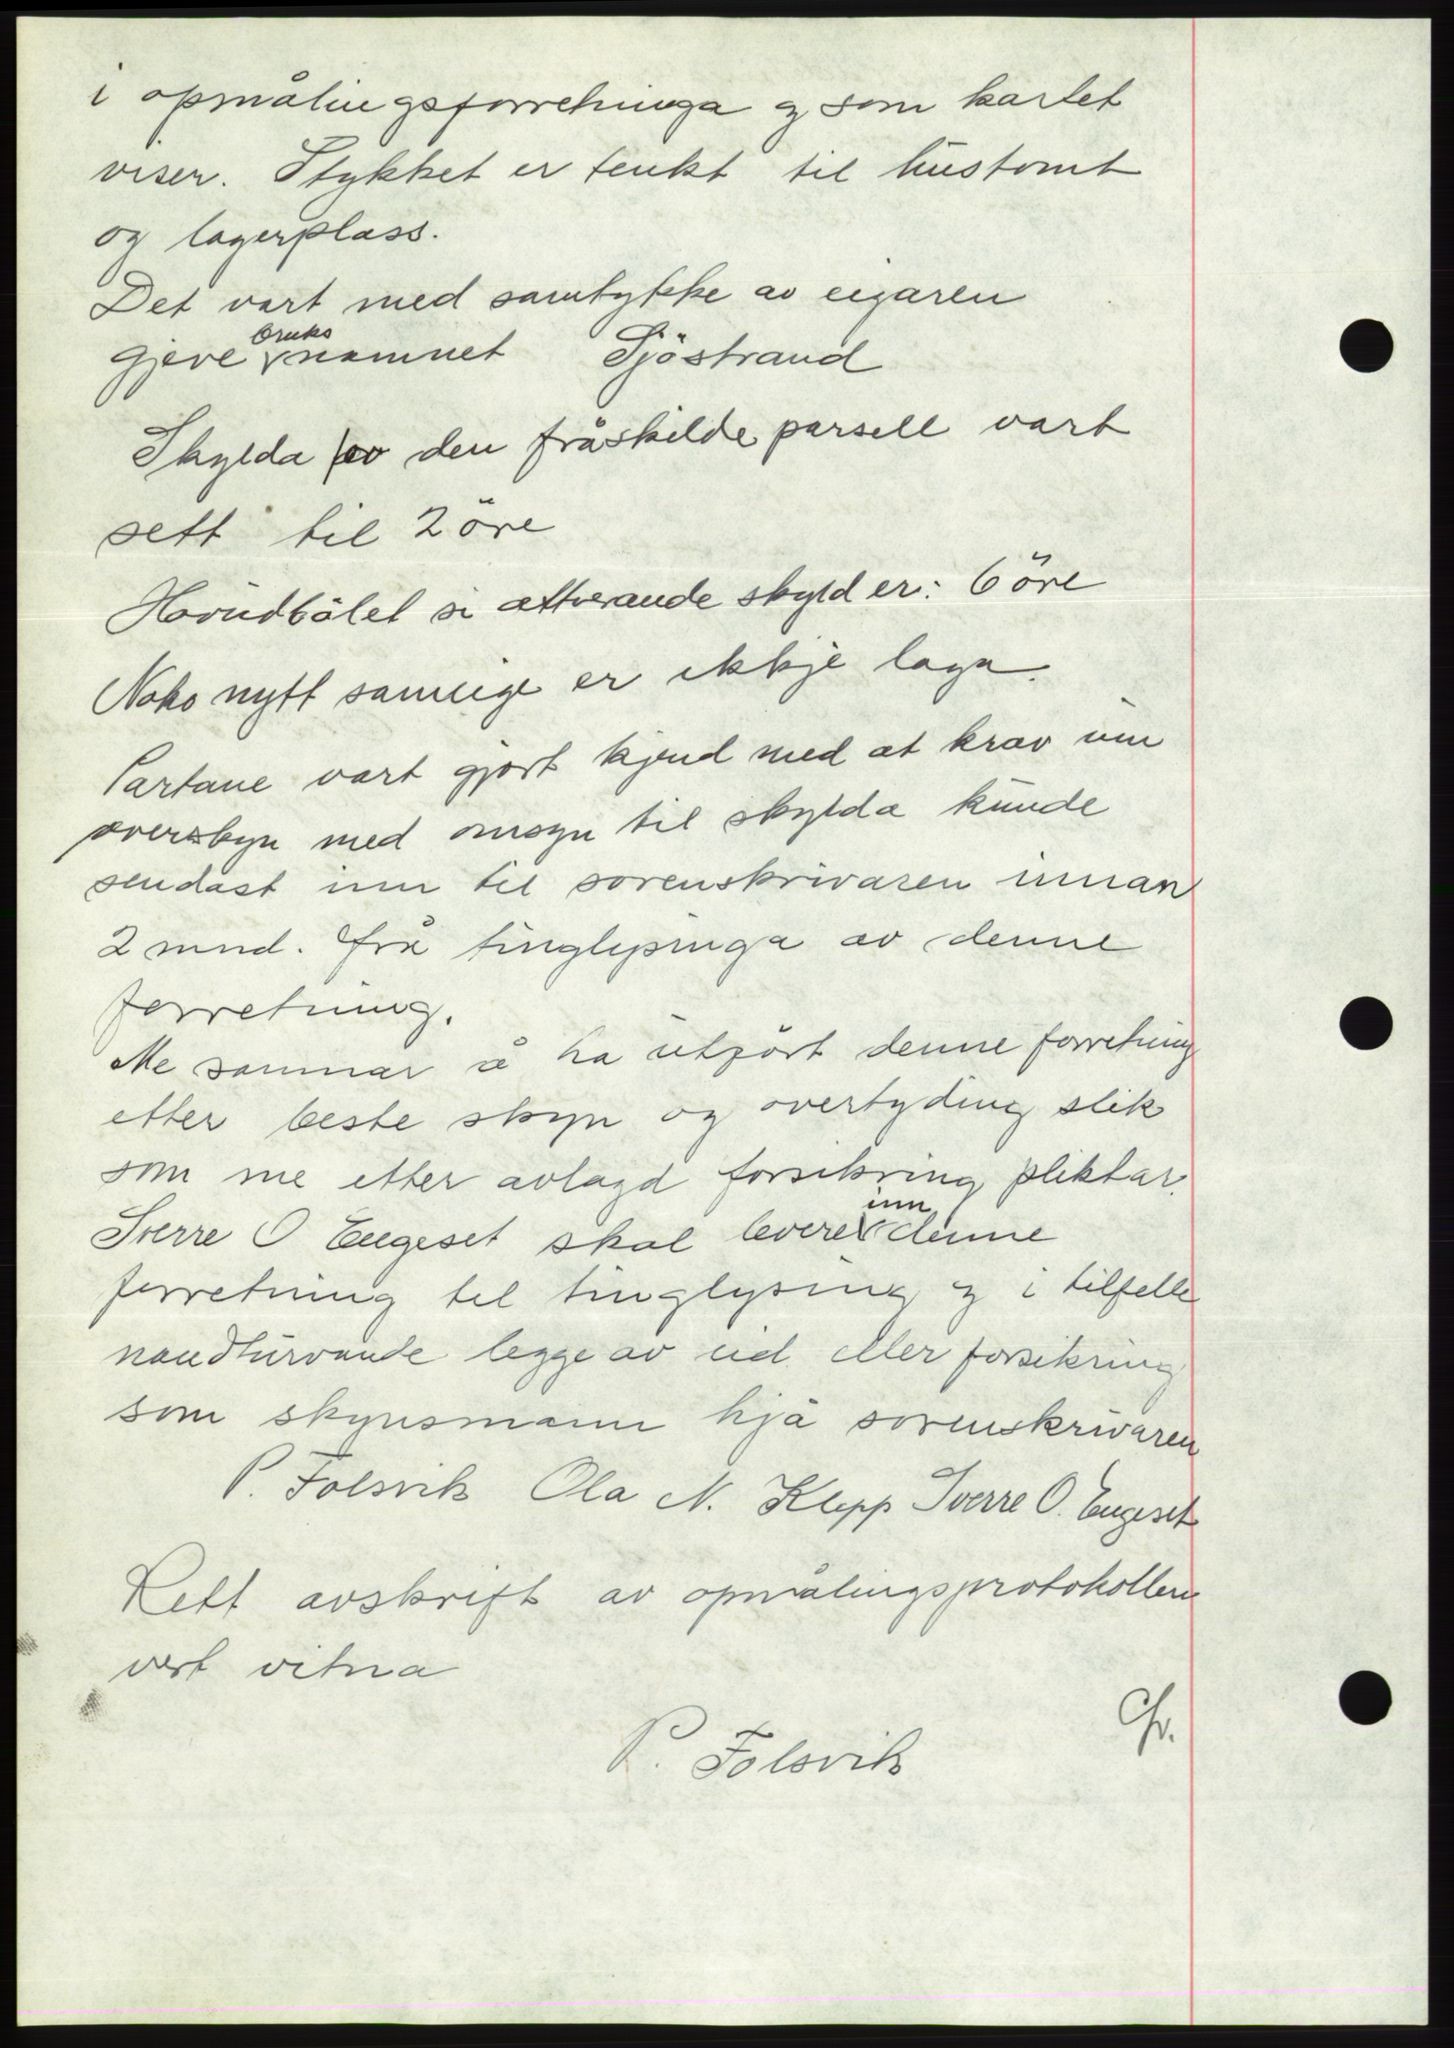 i opmålingsforretninga og som kartet
viser. Stykket er tenkt til hustomt
og lagerplass.
Det vart med samtykke av eigaren
gjeve bruksnamnet Sjöstrand
Skylda av den fråskilde parsell vart
sett til 2 öre
Hovudbölet si attverande skyld er: 6 öre
Noko nytt sameige er ikkje laga.
Partane vart gjort kjend med at krav um
overskyn med omsyn til skylda kunde
sendast inn til sorenskrivaren innan
2 mnd. frå tinglysinga av denne
forretning.
Me sannar å ha utfört denne forretning
etter beste skyn og overtyding slik
som me etter avlagd forsikring pliktar.
Sverre O Engeset skal levere inn denne
forretning til tinglysing og i tilfelle
naudturvande legge av eid eller forsikring
som skynsmann hjå sorenskrivaren
P. Folsvik Ola N. Klepp Sverre O. Engeset
Rett avskrift av opmålingsprotokollen
vert vitna
P. Folsvik